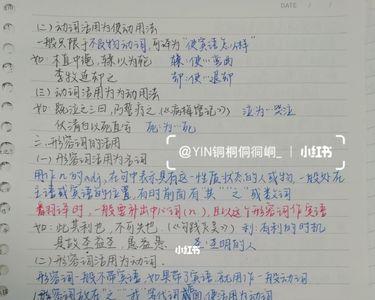 DATE / /
(二)动词活用为使动用法
一般只限于不及物动词,可译为"使宾语怎么样"
如:木直中绳,輮以为轮 輮:使…弯曲
李牧连却之 却:使…退却
(三)动词活用为为动用法
如:既泣之三日, 《病梅馆记》 泣为…哭泣
伏清白以死直兮 死:为…死
三.形容词的活用
(一)形容词活用为名词
用作n的adj,在句中表示具有这一性质状态的人或物,一般处在
主语或宾语的位置,有时前面有"其""之"或数词
翻译时,一般要补出中心词(n),且以这个形容词作定语
如:此其利也,不可失也。 利:有利的时机
是故圣益圣,愚益愚。 圣:圣明的人
(二)形容词活用为一般动词.
形容词一般不带宾语,如果带了宾语就用作一般动词
形容词放在"之""我"等代词前面便活用为动词
@YIN铜桐侗徊峒_ 小红书
小红书